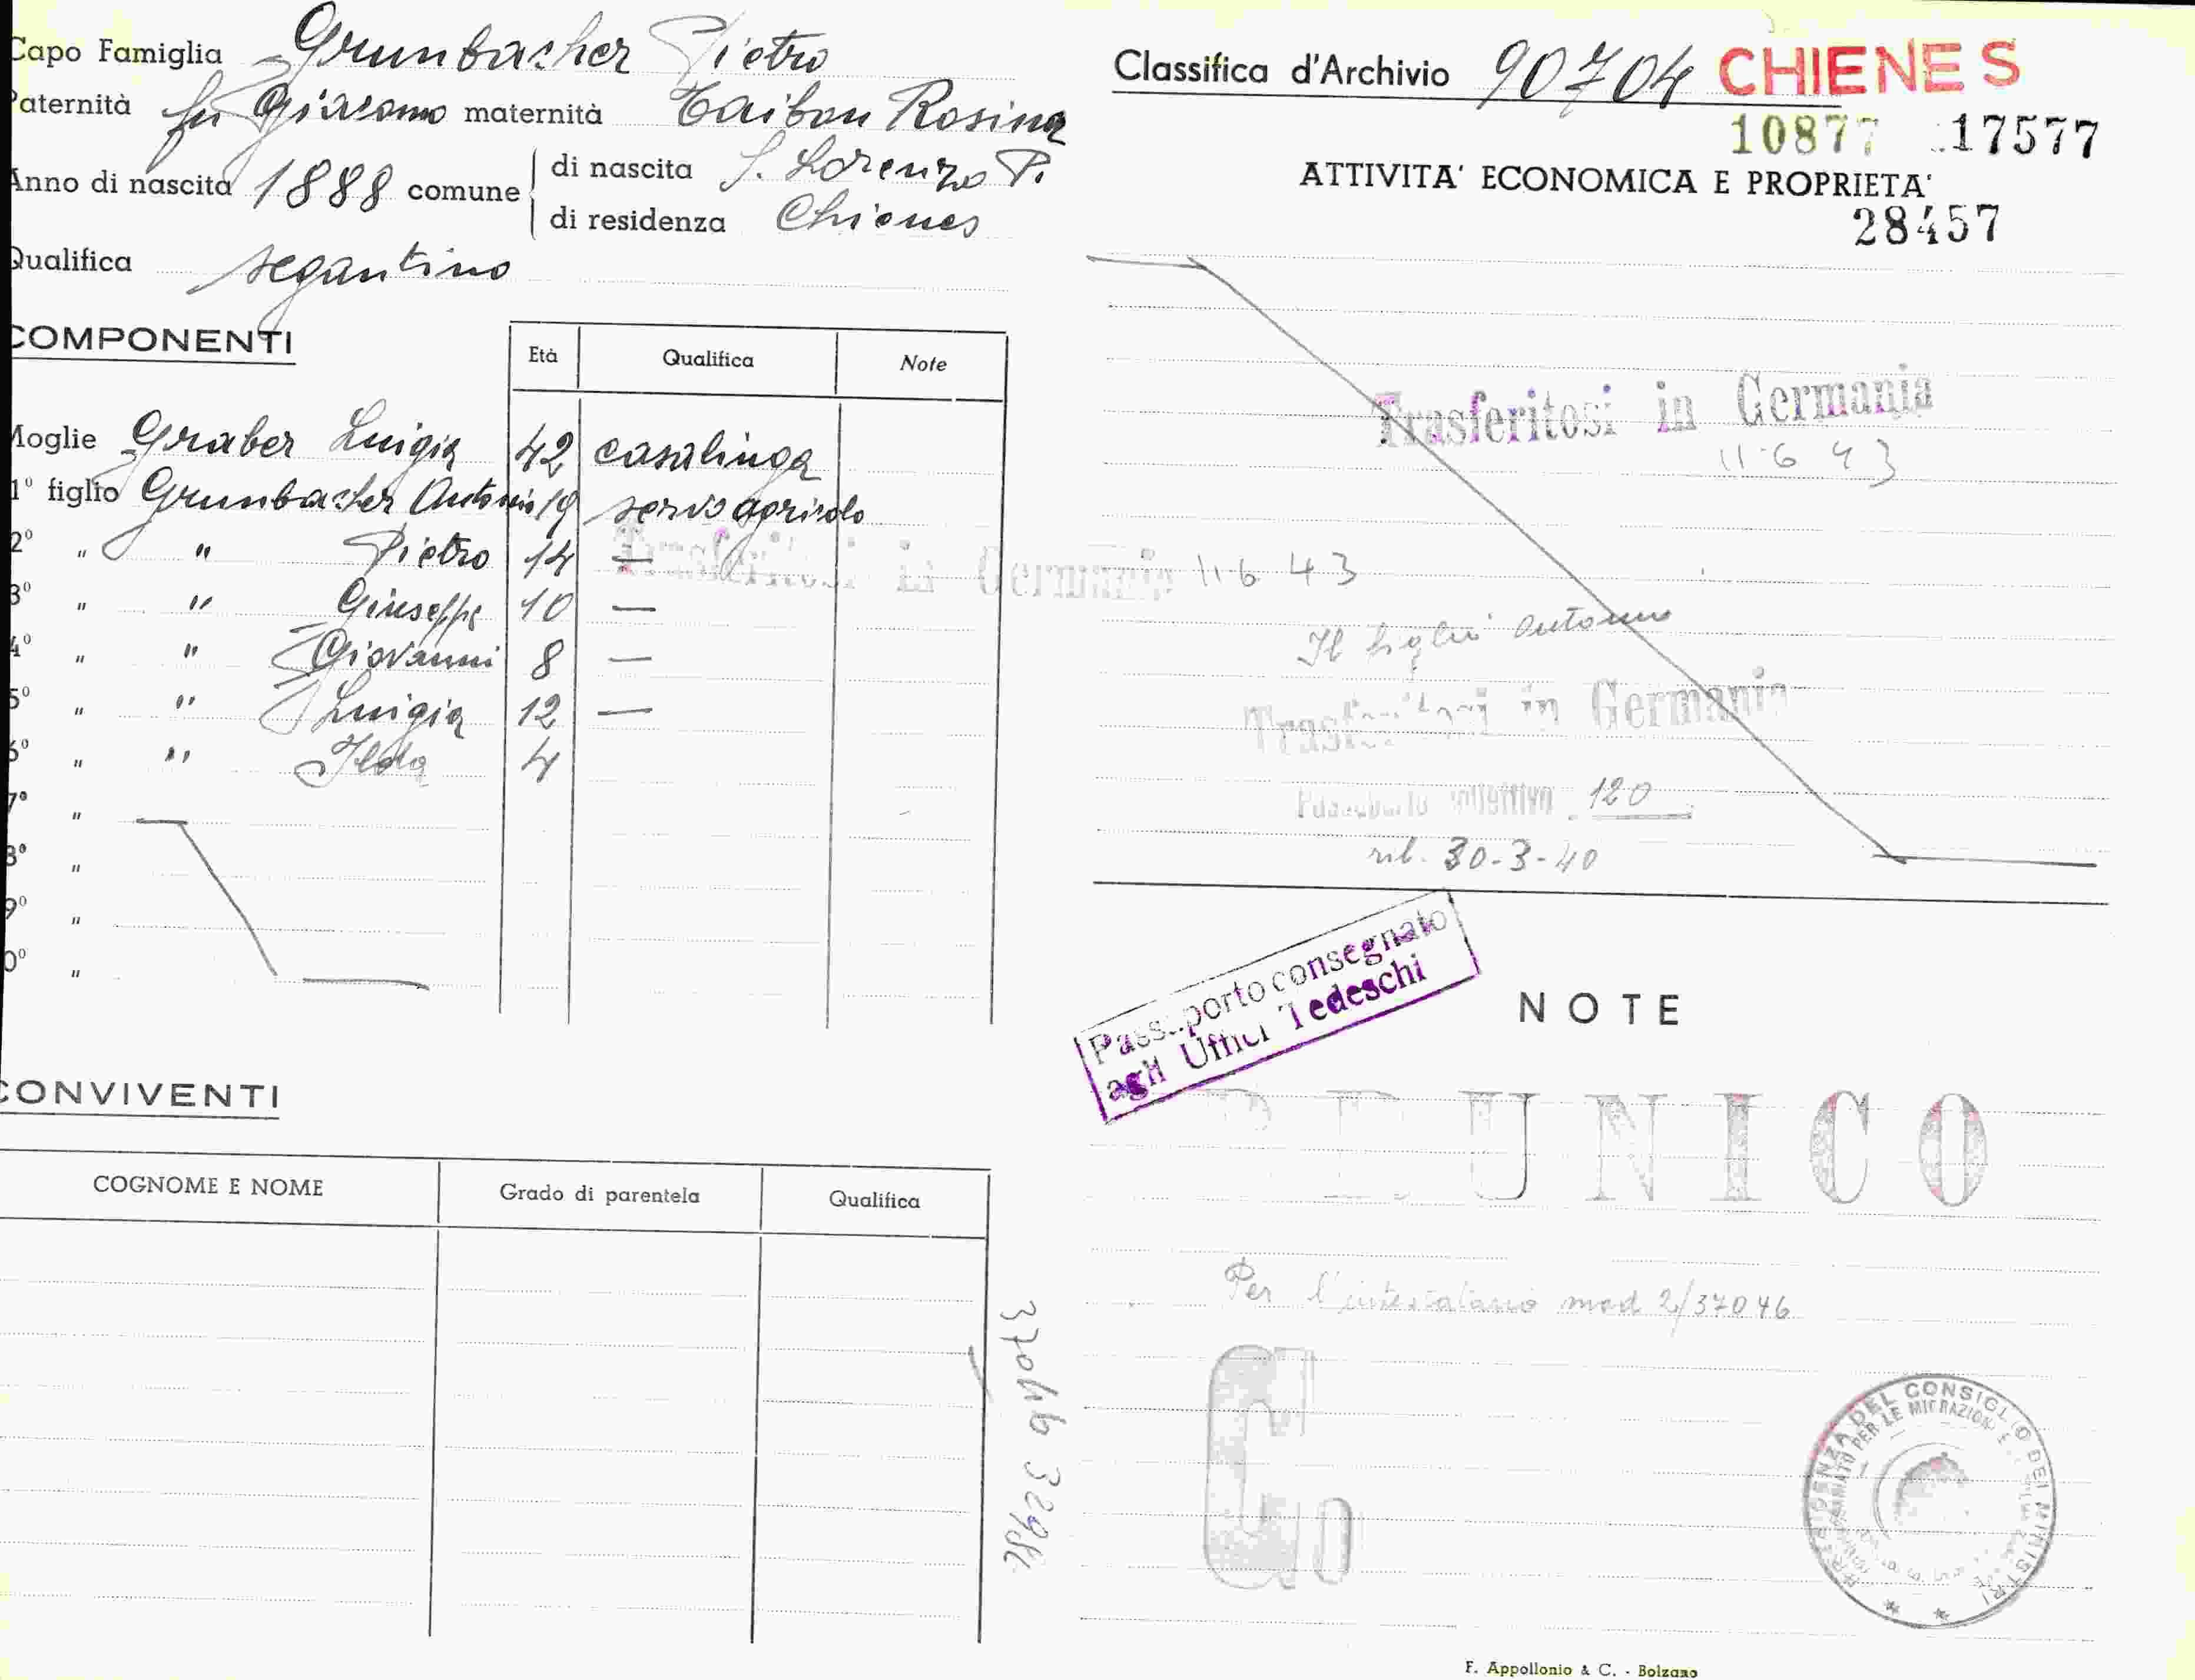 Capo Famiglia Grunbacher Pietro
Paternità fu Giacomo maternità Taibon Rosina
Anno di nascita 1888 comune di nascita S. Lorenzo P.
di residenza Chienes
Qualifica segantino
COMPONENTI
Età Qualifica Note
Moglie Graber Luigia 42 casalinga
1º figlio Grunbacher Antonio 19 servo agricolo
2º " " Pietro 14 —
3º " " Giuseppe 10 —
4º " " Giovanni 8 —
5º " " Luigia 12 —
6º " " Ilda 4
7º "
8º "
9º "
0º "
Trasferitosi in Germania 11 6 43
CONVIVENTI
COGNOME E NOME Grado di parentela Qualifica
37046
Classifica d'Archivio 90704 CHIENES
10877 17577
ATTIVITA' ECONOMICA E PROPRIETA'
28457
Trasferitosi in Germania
11 6 43
Il figlio Antonio
Trasferitosi in Germania
Passaporto collettivo 120
ril. 30-3-40
Passaporto consegnato
agli Uffici Tedeschi
NOTE
REUNICO
Per l'intestatario mod 2/37046
PRESIDENZA DEL CONSIGLIO DEI MINISTRI
PER LE MIGRAZIONI
F. Appollonio & C. - Bolzano